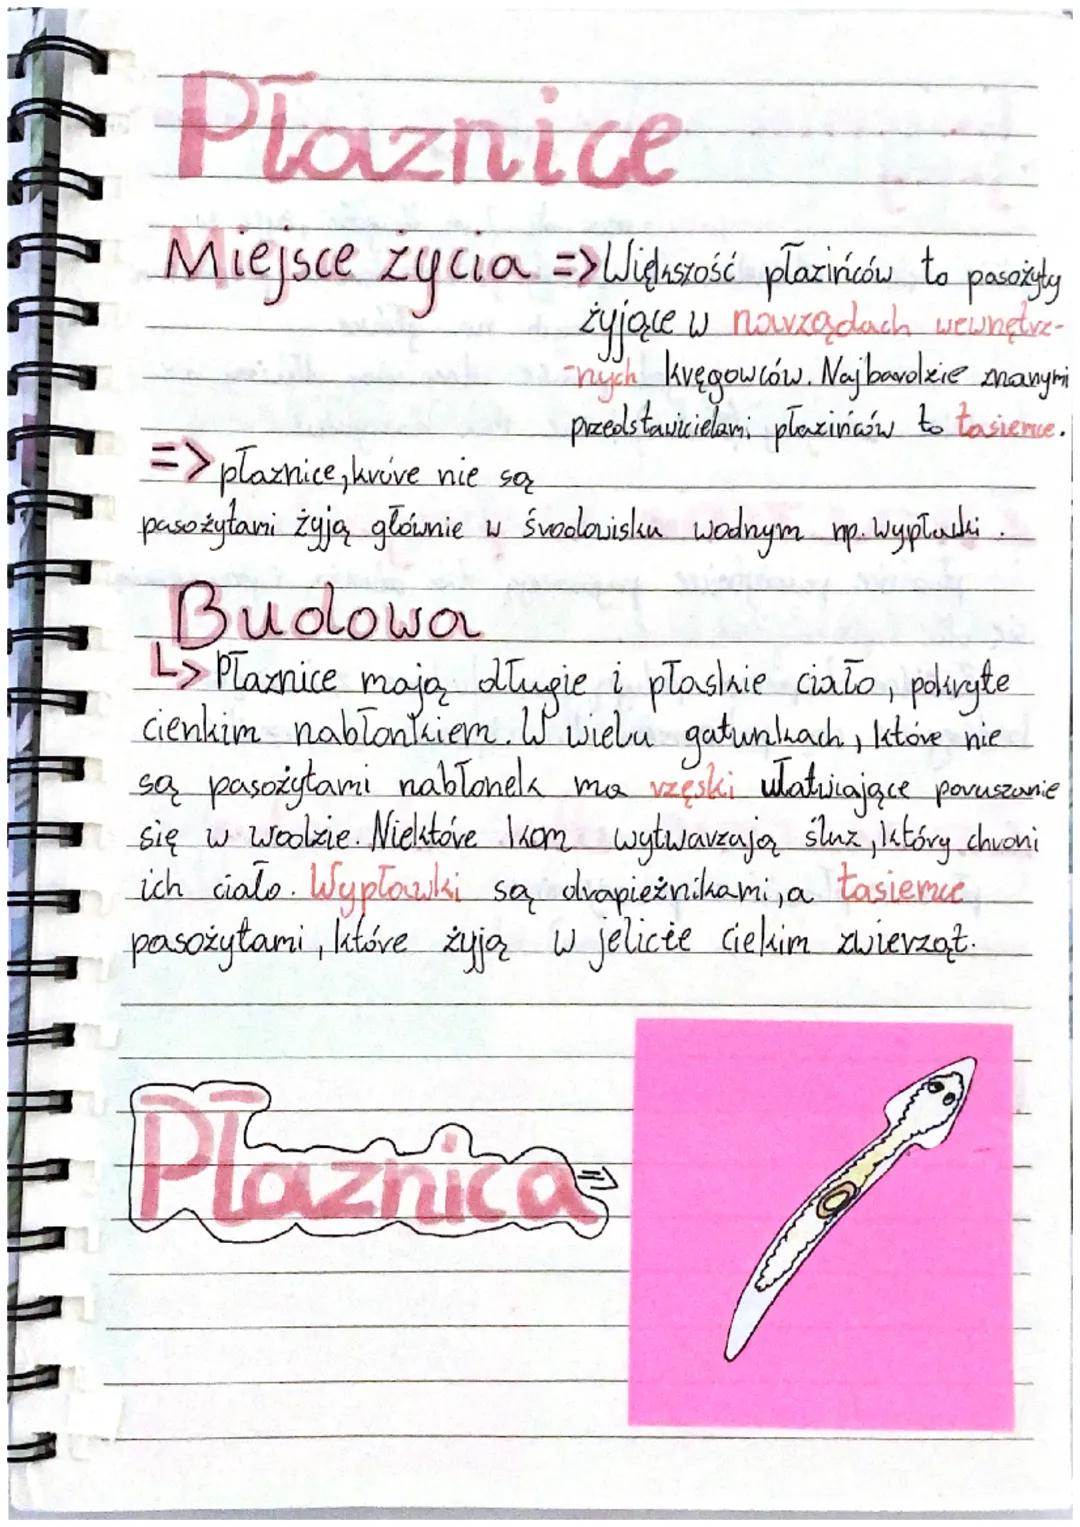 Płaznice
Miejsce życia => Większość płazińców to pasożyty
żyjące w narządach wewnętrz-
-nych kręgowców. Najbardzie znanymi
przedstawicielami płazińców to tasiemce.
=> płaznice, które nie są
pasożytami żyją głównie w środowisku wodnym np. wypławki.
Budowa
↳ Płaznice mają długie i płaskie ciało, pokryte
cienkim nabłonkiem. W wielu gatunkach, które nie
są pasożytami nabłonek ma rzęski ułatwiające poruszanie
się w wodzie. Niektóre kom wytwarzają śluz, który chroni
ich ciało. Wypławki są drapieżnikami, a tasiemce
pasożytami, które żyją w jelicie cielkim zwierząt.
Płaznica =>